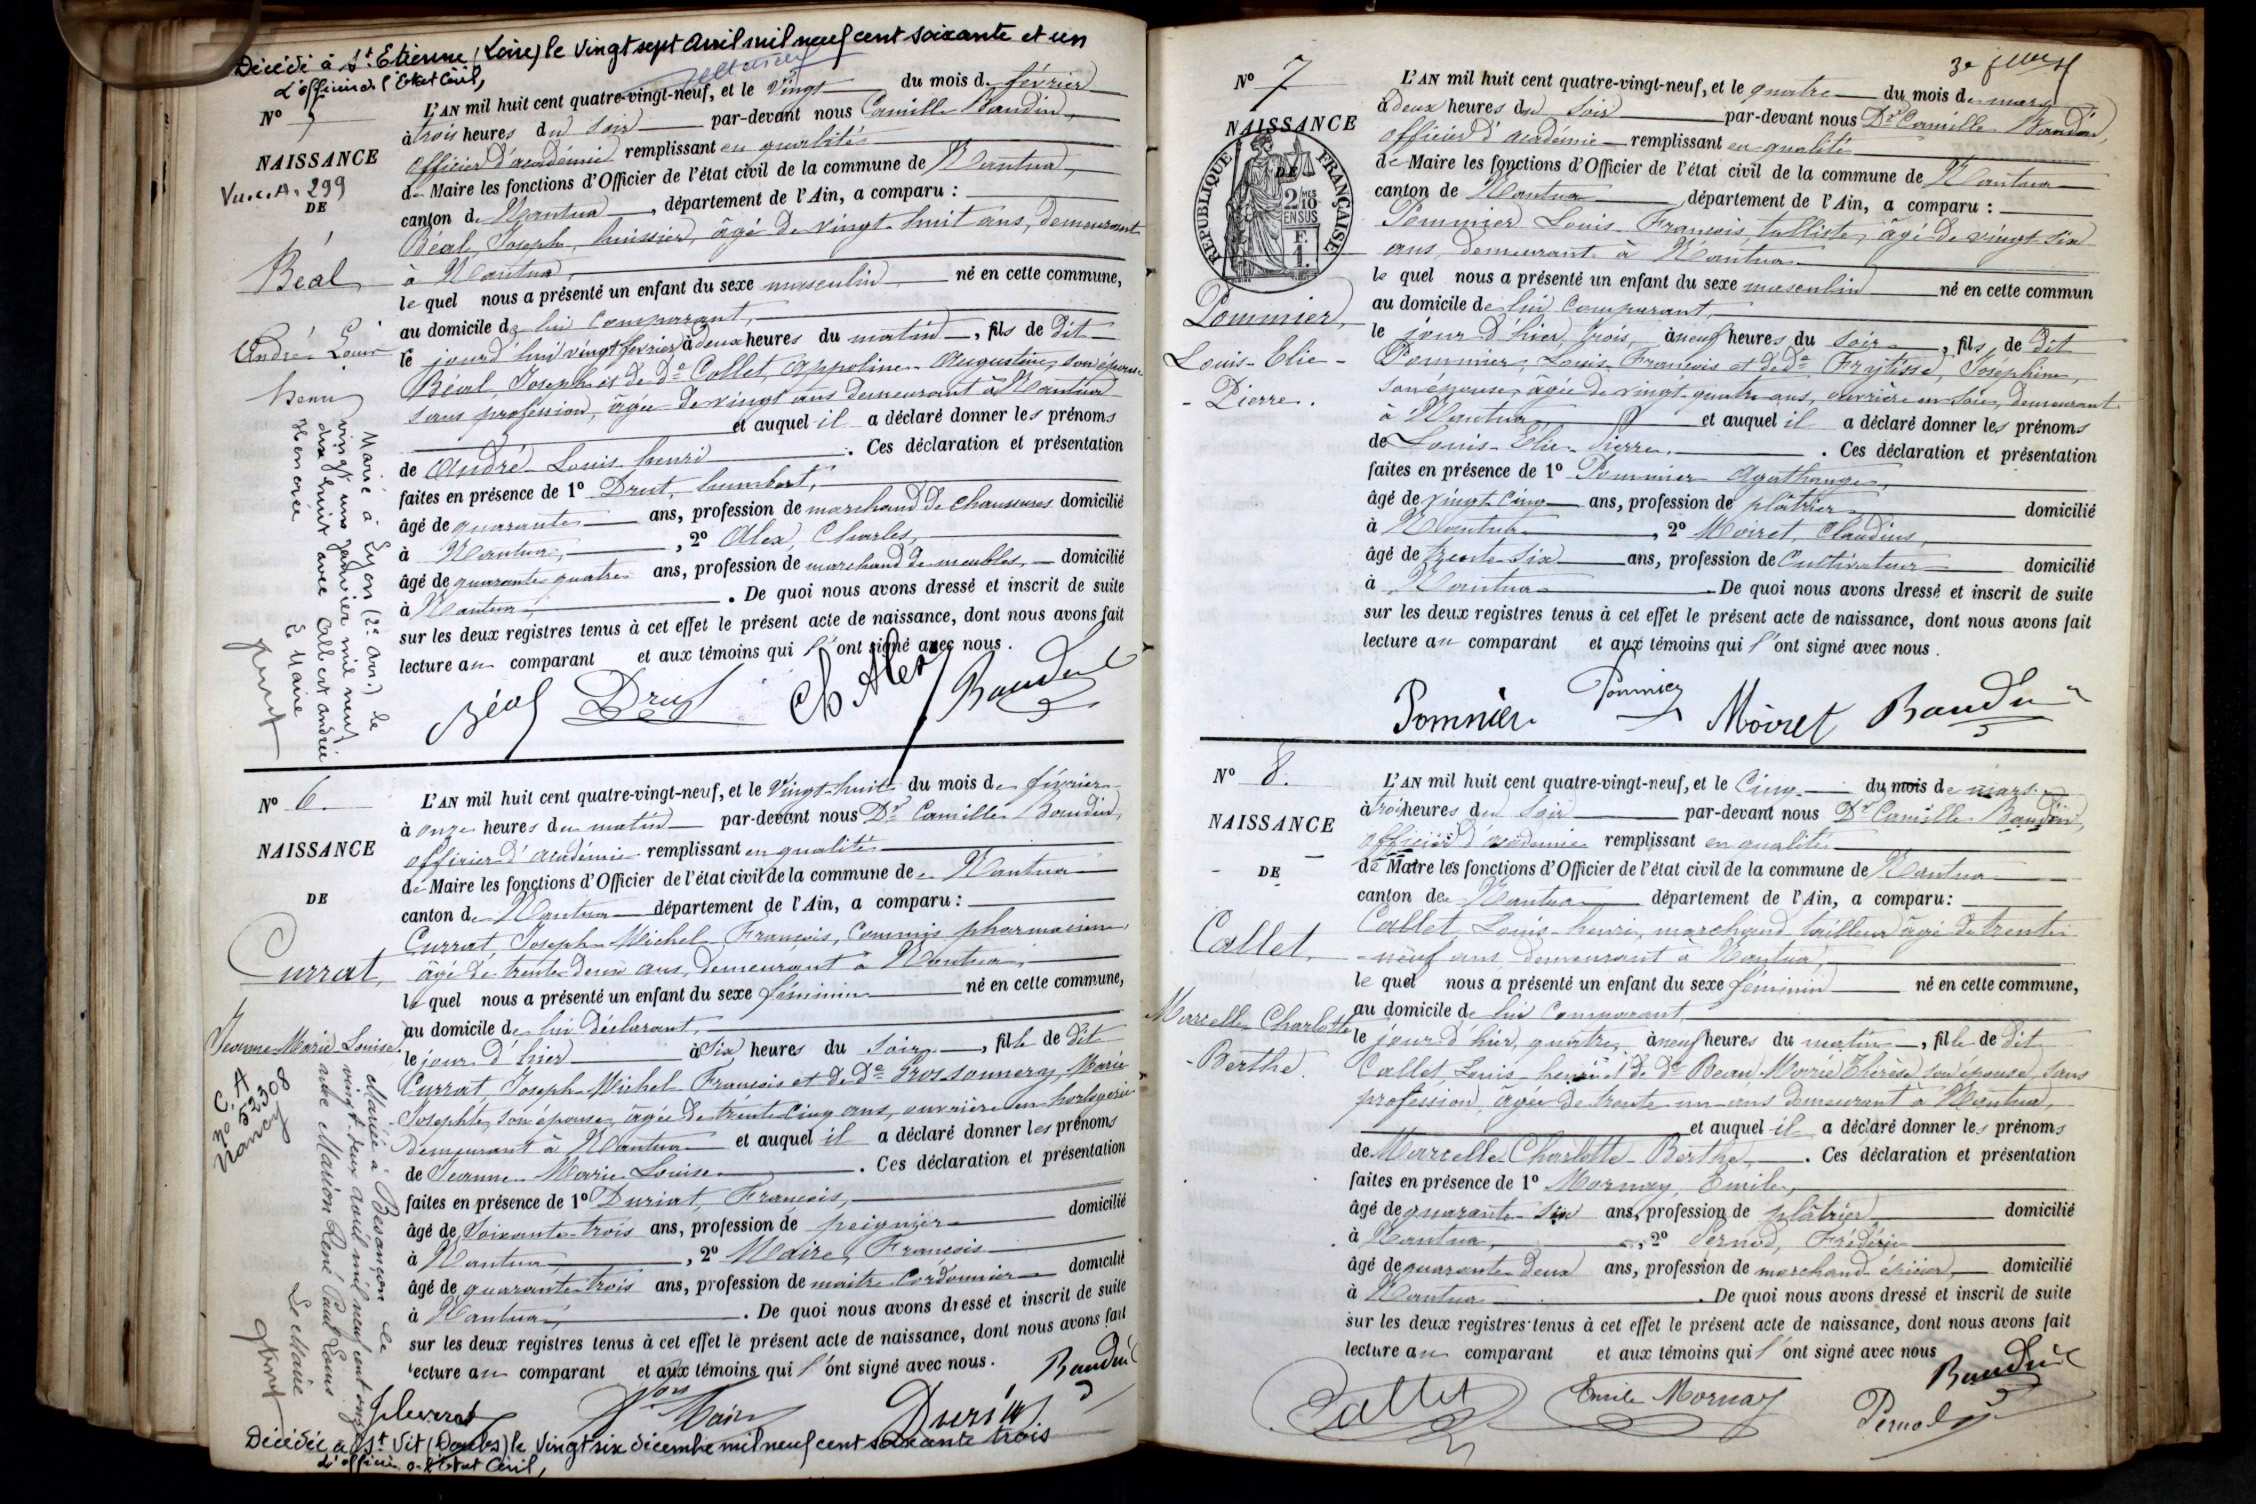 Décédé à St Etienne (Loire) le vingt sept Avril mil neuf cent soixante et un
L'officier de l'Etat Civil,
No 5
NAISSANCE
Vu. c. A. 299
DE
Béal
André Louis
henri
Marié à Lyon (2e arr.) le
vingt un janvier mil neuf
dix huit avec
Le Maire
L'AN mil huit cent quatre-vingt-neuf, et le Vingt du mois de février
à trois heures du soir par-devant nous Camille Baudin,
officier d'académie remplissant en qualité
de Maire les fonctions d'Officier de l'état civil de la commune de Nantua,
canton de Nantua, département de l'Ain, a comparu :
Béal, Joseph, huissier, âgé de vingt-huit ans, demeurant
à Nantua,
le quel nous a présenté un enfant du sexe masculin né en cette commune,
au domicile de lui comparant,
le jourd'hui vingt février à deux heures du matin, fils de dit
Béal, Joseph et de De Collet, Appoline Augustine, son épouse
sans profession, âgée de vingt ans demeurant à Nantua
et auquel il a déclaré donner les prénoms
de André Louis henri. Ces déclaration et présentation
faites en présence de 1o Drut, humbert,
âgé de quarante ans, profession de marchand de chaussures domicilié
à Nantua, 2o Alex, Charles,
âgé de quarante quatre ans, profession de marchand de meubles, domicilié
à Nantua. De quoi nous avons dressé et inscrit de suite
sur les deux registres tenus à cet effet le présent acte de naissance, dont nous avons fait
lecture au comparant et aux témoins qui l'ont signé avec nous.
Béal Drut Ch Alex Baudin
No 6.
NAISSANCE
DE
Currat,
Jeanne Marie Louise.
C. A
no 52308
Nancy
Mariée à Besançon le
vingt-deux août mil neuf cent onze
avec Marion René Paul Louis.
Le Maire
L'AN mil huit cent quatre-vingt-neuf, et le Vingt-huit du mois de février
à onze heures du matin par-devant nous Dr Camille Baudin,
officier d'académie remplissant en qualité
de Maire les fonctions d'Officier de l'état civil de la commune de Nantua
canton de Nantua département de l'Ain, a comparu :
Currat, Joseph Michel François, Commis pharmacien,
âgé de trente deux ans, demeurant à Nantua,
le quel nous a présenté un enfant du sexe féminin né en cette commune,
au domicile de lui déclarant,
le jour d'hier à Six heures du soir, fille de dit
Currat, Joseph Michel François et de De Grossonnery, Marie
Josephte, son épouse, âgée de trente cinq ans, ouvrière en horlogerie
demeurant à Nantua et auquel il a déclaré donner les prénoms
de Jeanne Marie Louise. Ces déclaration et présentation
faites en présence de 1o Duriat, François,
âgé de Soixante-trois ans, profession de peignier domicilié
à Nantua, 2o Maire, François
âgé de quarante trois ans, profession de maître Cordonnier domicilié
à Nantua. De quoi nous avons dressé et inscrit de suite
sur les deux registres tenus à cet effet le présent acte de naissance, dont nous avons fait
lecture au comparant et aux témoins qui l'ont signé avec nous. Baudin
Maire Duriat
Décédée à St Vit (Doubs) le Vingt six décembre mil neuf cent soixante trois
L'officier de l'Etat Civil,
No 7
NAISSANCE
DE
RÉPUBLIQUE FRANÇAISE
2 MES 10
EN SUS
F.
1.
Pommier,
Louis-Elie-
-Pierre.
L'AN mil huit cent quatre-vingt-neuf, et le quatre du mois de mars
à deux heures du soir par-devant nous Dr Camille Baudin,
officier d'académie remplissant en qualité
de Maire les fonctions d'Officier de l'état civil de la commune de Nantua
canton de Nantua département de l'Ain, a comparu :
Pommier Louis François, tulliste, âgé de vingt-six
ans, demeurant à Nantua
le quel nous a présenté un enfant du sexe masculin né en cette commun
au domicile de lui comparant,
le jour d'hier, trois, à neuf heures du soir, fils de dit
Pommier, Louis François et de De Frytisse, Joséphine,
son épouse, âgée de vingt-quatre ans, ouvrière en soie, demeurant
à Nantua et auquel il a déclaré donner les prénoms
de Louis-Elie-Pierre. Ces déclaration et présentation
faites en présence de 1o Pommier Agathange,
âgé de vingt cinq ans, profession de plâtrier domicilié
à Nantua, 2o Moiret, Claudius,
âgé de trente six ans, profession de Cultivateur domicilié
à Nantua. De quoi nous avons dressé et inscrit de suite
sur les deux registres tenus à cet effet le présent acte de naissance, dont nous avons fait
lecture au comparant et aux témoins qui l'ont signé avec nous.
Pommier Pommier Moiret Baudin
No 8.
NAISSANCE
DE
Callet,
Marcelle Charlotte
-Berthe.
L'AN mil huit cent quatre-vingt-neuf, et le Cinq du mois de mars
à trois heures du soir par-devant nous Dr Camille Baudin,
officier d'académie remplissant en qualité
de Maire les fonctions d'Officier de l'état civil de la commune de Nantua
canton de Nantua département de l'Ain, a comparu :
Callet, Louis-henri, marchand tailleur âgé de trente-
-neuf ans demeurant à Nantua,
le quel nous a présenté un enfant du sexe féminin né en cette commune,
au domicile de lui comparant
le jour d'hier, quatre, à neuf heures du matin, fille de dit
Callet, Louis-henri et de De Beau, Marie Thérèse son épouse, sans
profession, âgée de trente un ans demeurant à Nantua,
et auquel il a déclaré donner les prénoms
de Marcelle Charlotte Berthe. Ces déclaration et présentation
faites en présence de 1o Mornay, Emile,
âgé de quarante six ans, profession de plâtrier domicilié
à Nantua, 2o Pernod, Frédéric
âgé de quarante deux ans, profession de marchand épicier, domicilié
à Nantua. De quoi nous avons dressé et inscrit de suite
sur les deux registres tenus à cet effet le présent acte de naissance, dont nous avons fait
lecture au comparant et aux témoins qui l'ont signé avec nous
Callet Emile Mornay Pernod Baudin